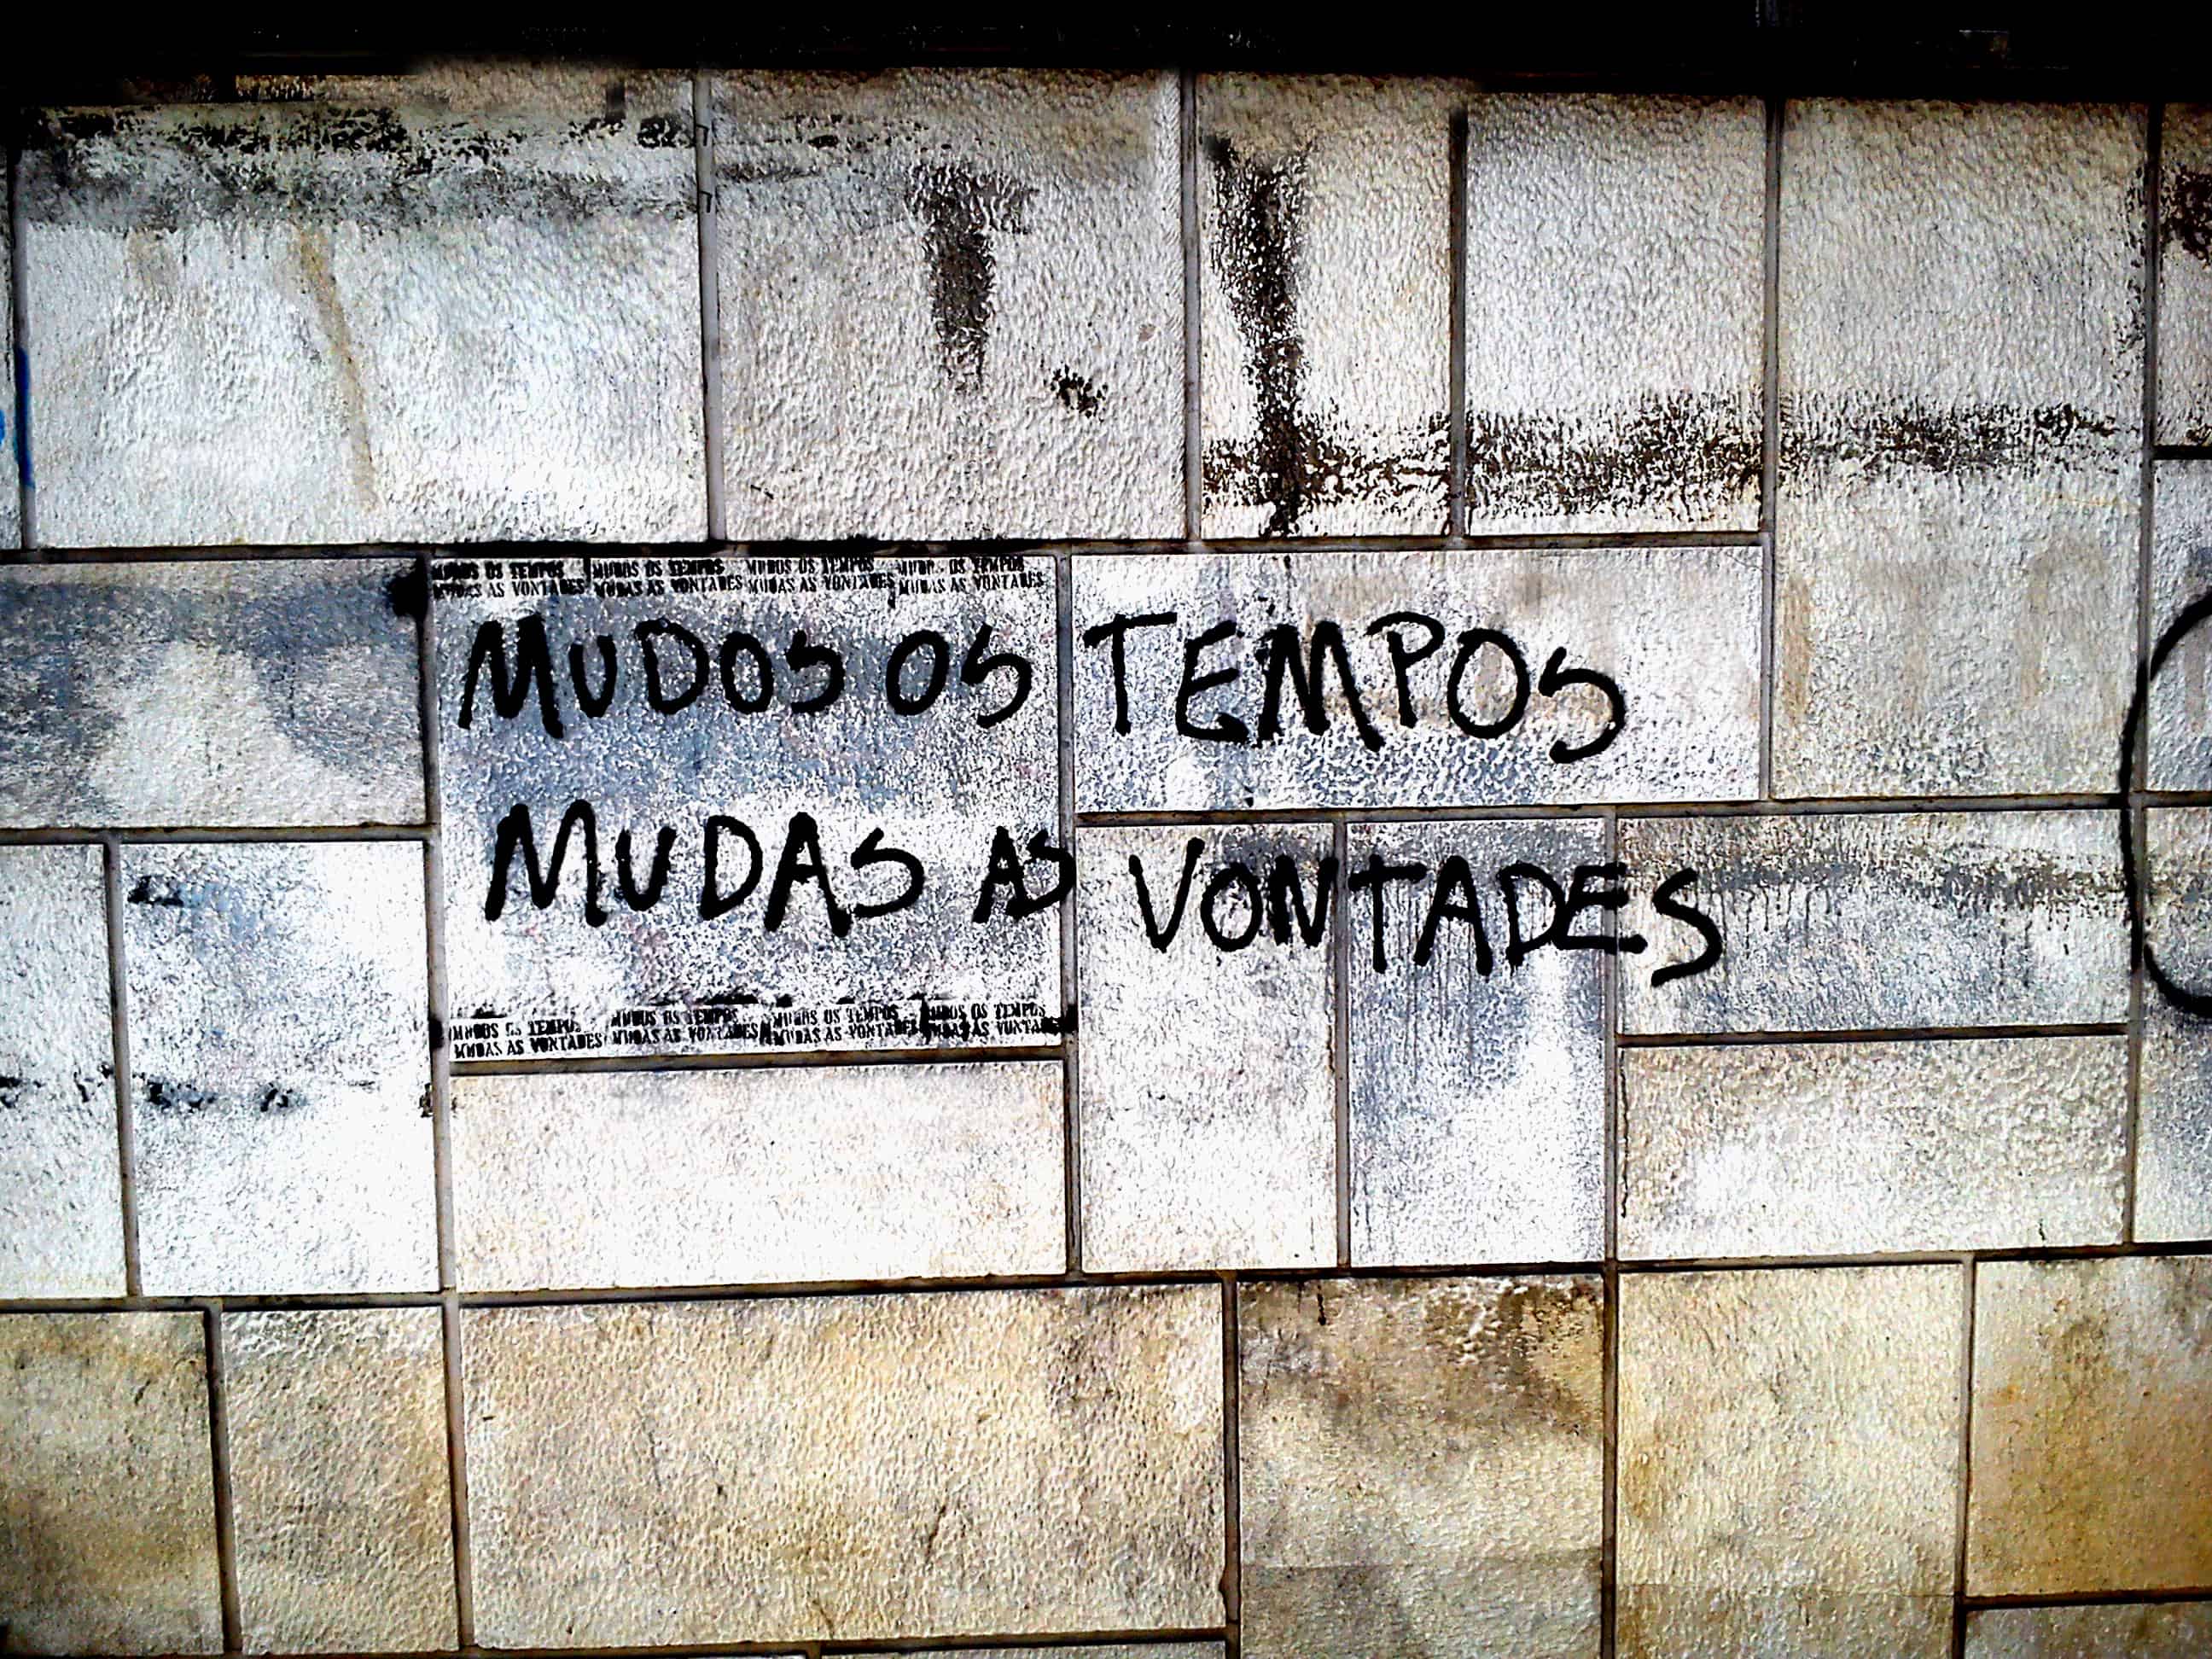 MUDOS OS TEMPOS MUDOS OS TEMPOS MUDOS OS TEMPOS MUDOS OS TEMPOS
MUDAS AS VONTADES MUDAS AS VONTADES MUDAS AS VONTADES MUDAS AS VONTADES
MUDOS OS TEMPOS
MUDAS AS VONTADES
MUDOS OS TEMPOS MUDOS OS TEMPOS MUDOS OS TEMPOS MUDOS OS TEMPOS
MUDAS AS VONTADES MUDAS AS VONTADES MUDAS AS VONTADES MUDAS AS VONTADES